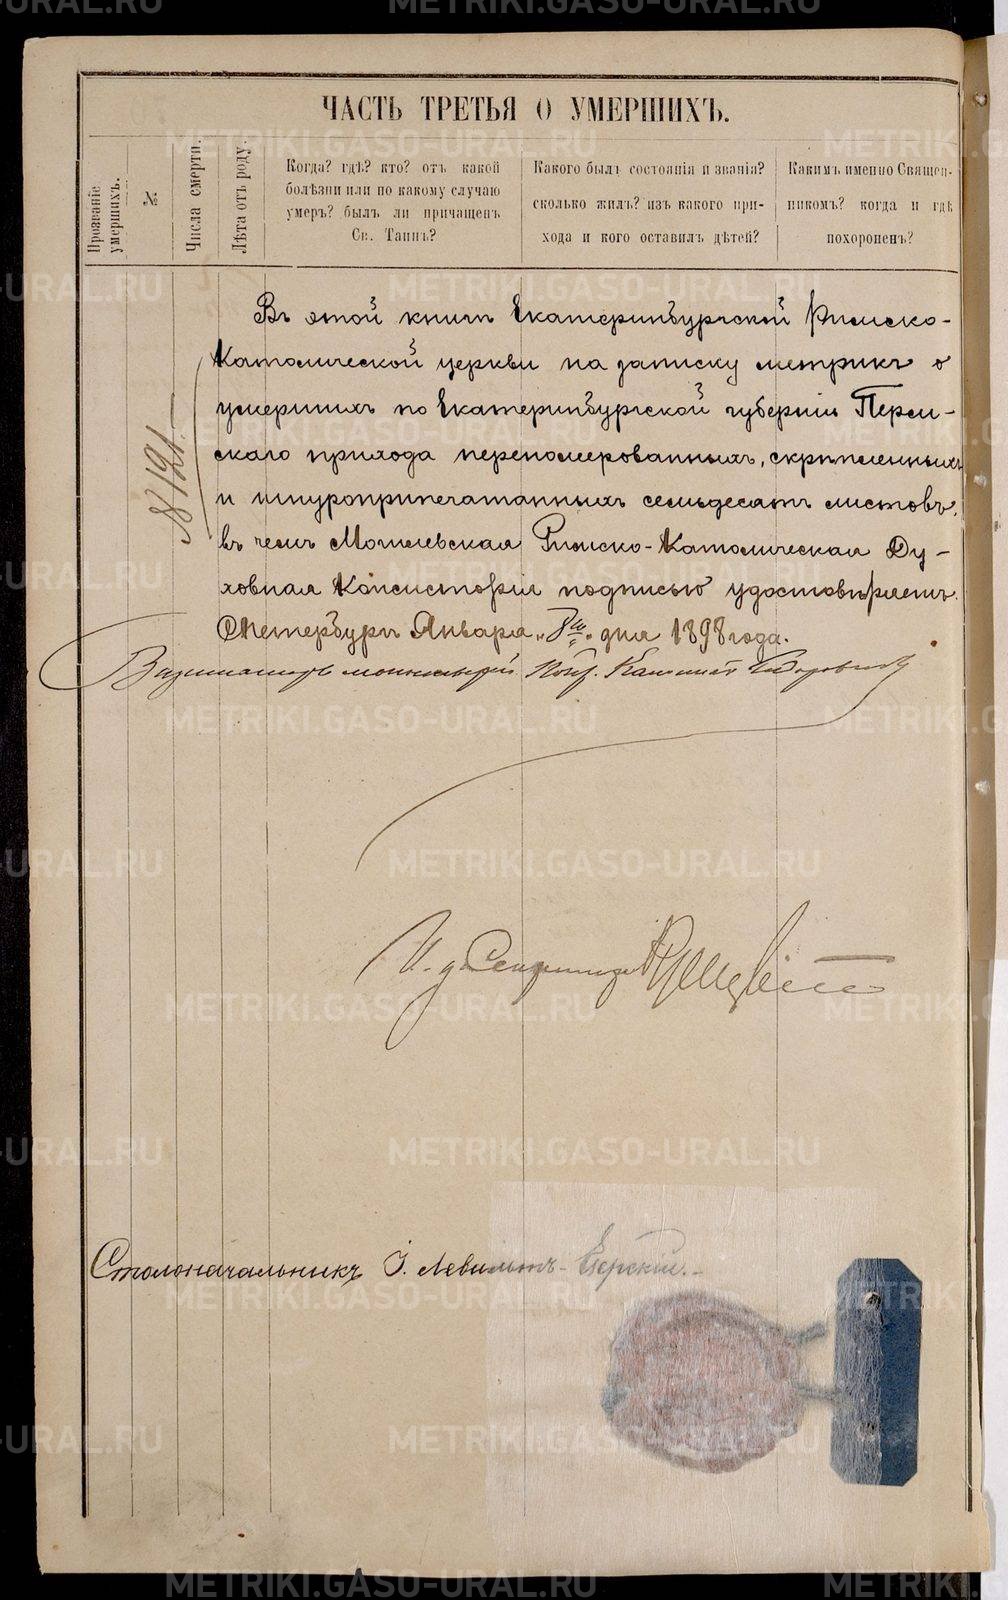 ЧАСТЬ ТРЕТЬЯ О УМЕРШИХЪ.
Прозваніе умершихъ.
№
Числа смерти.
Лѣта отъ роду.
Когда? гдѣ? кто? отъ какой
болѣзни или по какому случаю
умеръ? былъ ли причащенъ
Св. Таинъ?
Какого былъ состоянія и званія?
сколько жилъ? изъ какого при-
хода и кого оставилъ дѣтей?
Какимъ именно Священ-
никомъ? когда и гдѣ
похороненъ?
№ 121.
Въ этой книгѣ Екатеринбургской Римско-
Католической церкви на записку метрикъ о
умершихъ по Екатеринбургской губерніи Перм-
скаго прихода перенумерованныхъ, скрѣпленныхъ
и шнуроприпечатанныхъ семьдесятъ листовъ,
въ чемъ Могилевская Римско-Католическая Ду-
ховная Консисторія подписью удостовѣряетъ.
С Петербургъ Января „8го“ дня 1898 года.
И. д. Секретаря
Столоначальникъ І.
METRIKI.GASO-URAL.RU